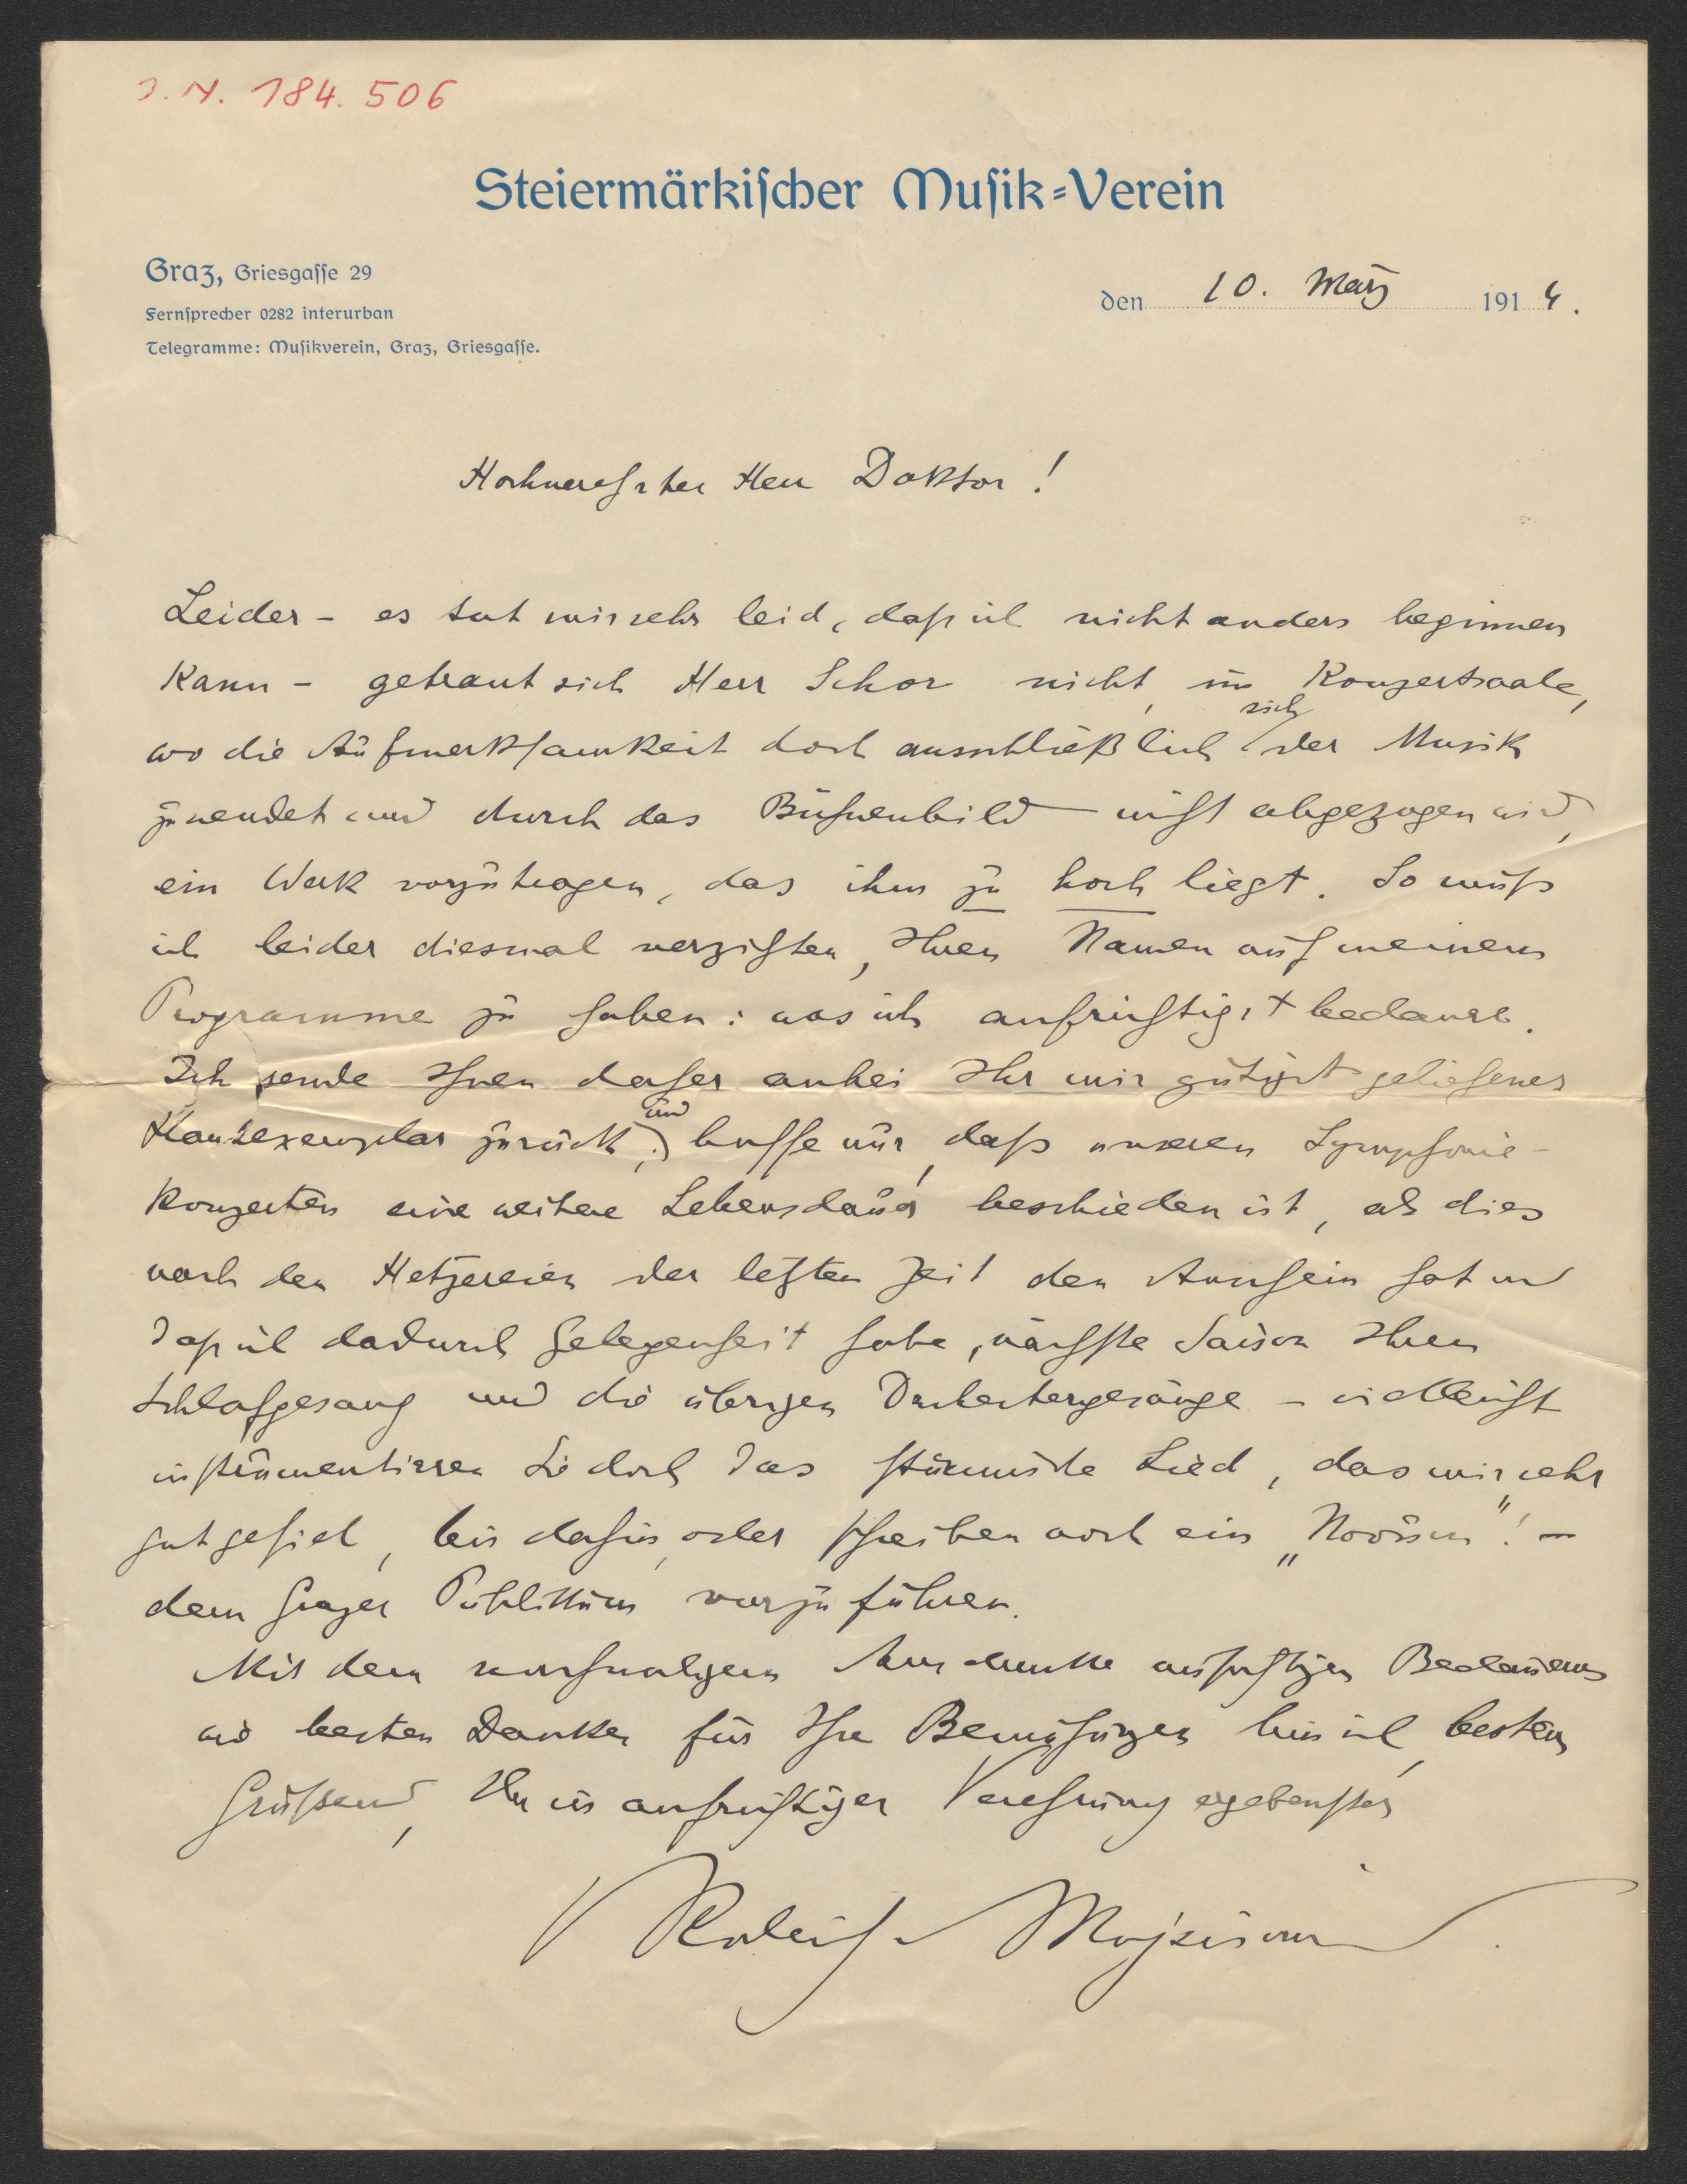 J. N. 184.506
Steiermärkischer Musik-Verein
Graz, Griesgasse 29
Fernsprecher 0282 interurban
Telegramme: Musikverein, Graz, Griesgasse.
den 10. März 1914.
Hochverehrter Herr Doktor!
Leider – es tut mir sehr leid, daß ich nicht anders beginnen
kann – getraut sich Herr Schor nicht, im Konzertsaale,
wo die Aufmerksamkeit doch ausschließlich sich der Musik
zuwendet und durch das Bühnenbild nicht abgezogen wird,
ein Werk vorzutragen, das ihm zu hoch liegt. So muß
ich leider diesmal verzichten, Ihren Namen auf meinem
Programme zu haben: was ich aufrichtigst bedaure.
Ich sende Ihnen daher anbei Ihr mir gütigst geliehenes
Handexemplar zurück, und hoffe nur, daß unseren Symphonie-
konzerten eine weitere Lebensdauer beschieden ist, als dies
nach den Hetzereien der letzten Zeit den Anschein hat und
daß ich dadurch Gelegenheit habe, nächste Saison Ihren
Schlafgesang und die übrigen Orchestergesänge – vielleicht
instrumentieren Sie doch das stürmische Lied, das mir sehr
gut gefiel, bis dahin, oder schreiben noch ein „Novissimum"! –
dem Grazer Publikum vorzuführen.
Mit dem nochmaligen Ausdrucke aufrichtigen Bedauerns
und besten Danken für Ihre Bemühungen bin ich, bestens
Grüßend, Ihr in aufrichtiger Verehrung ergebenster
Roderich Mojsisovics